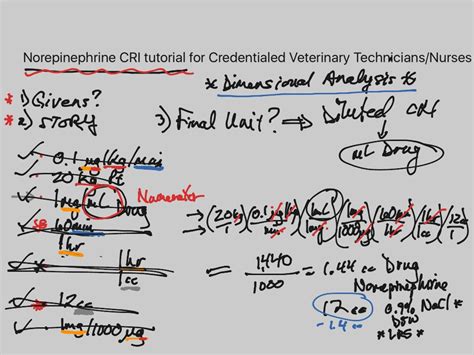 Norepinephrine CRI tutorial for Credentialed Veterinary Technicians/Nurses
* Dimensional Analysis *
* 1) Givens?
* 2) STORY
3) Final Unit? ⇒ Diluted CRI
mL Drug
0.1 µg/kg/min
20 kg Pt
1mg/mL Drug
Numerator
60min
1hr
1hr
1cc
12cc
1mg/1000µg
→ (20kg/1)(0.1µg/kg/min)(1mL/1mg)(1mg/1000µg)(60min/1hr)(1hr/1cc)(12cc/1)
= 1440/1000 = 1.44 cc Drug
Norepinephrine
12cc
-1.4cc
0.9% NaCl *
D5W
* LRS *